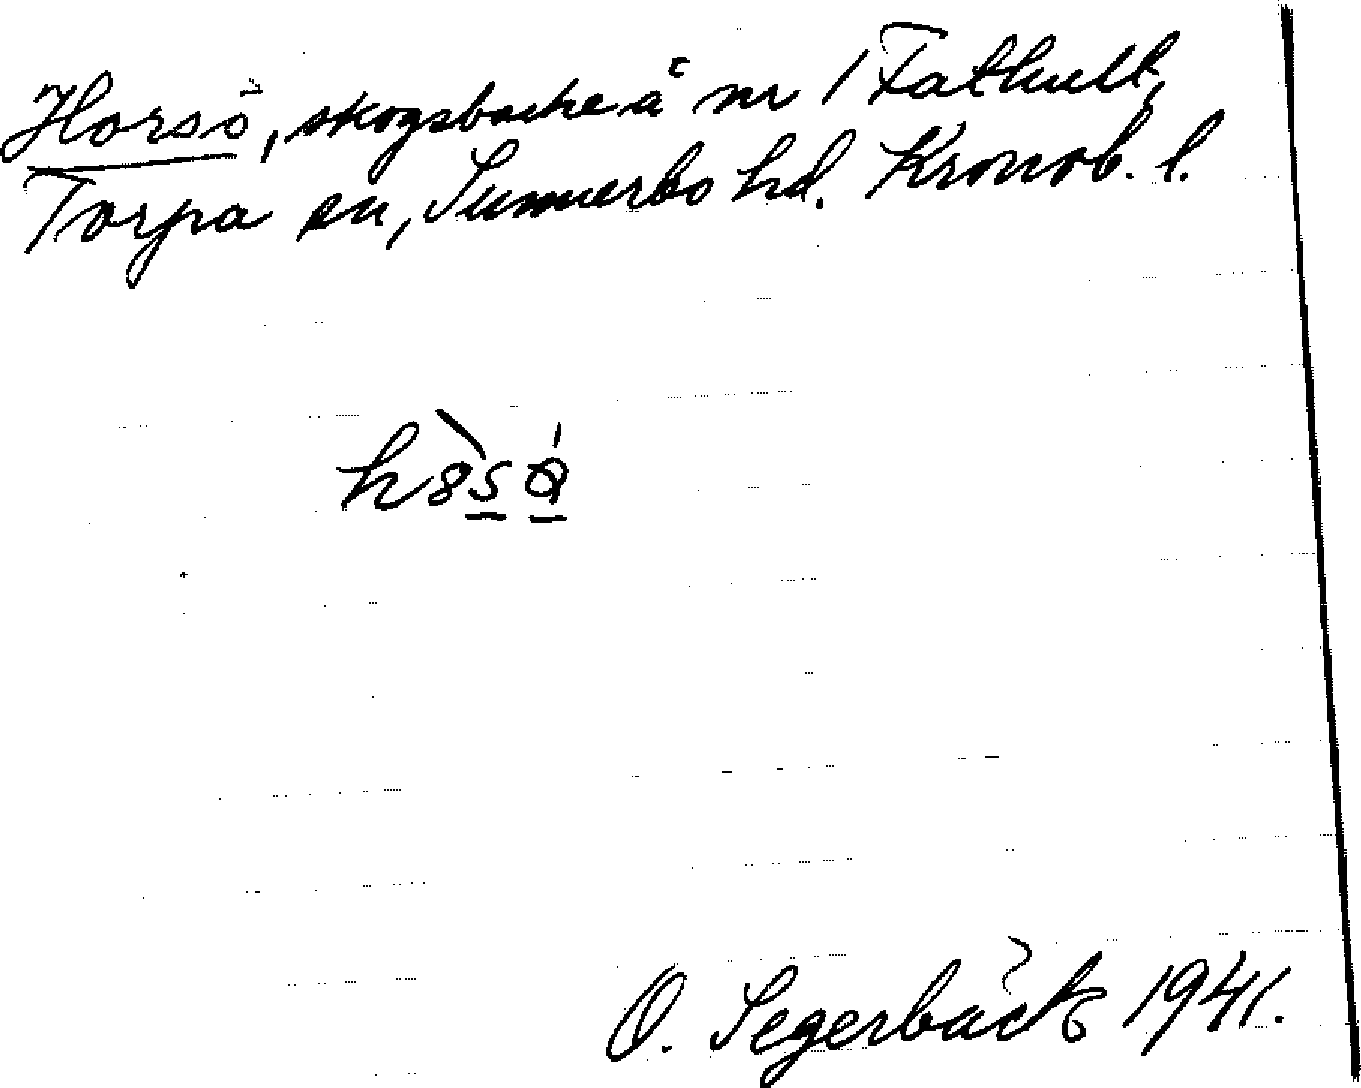 Horsö, skogsbacke å nr 1 Fathult,
Torpa sn, Sunnerbo hd. Kronob. l.
O. Segerbäck 1941.